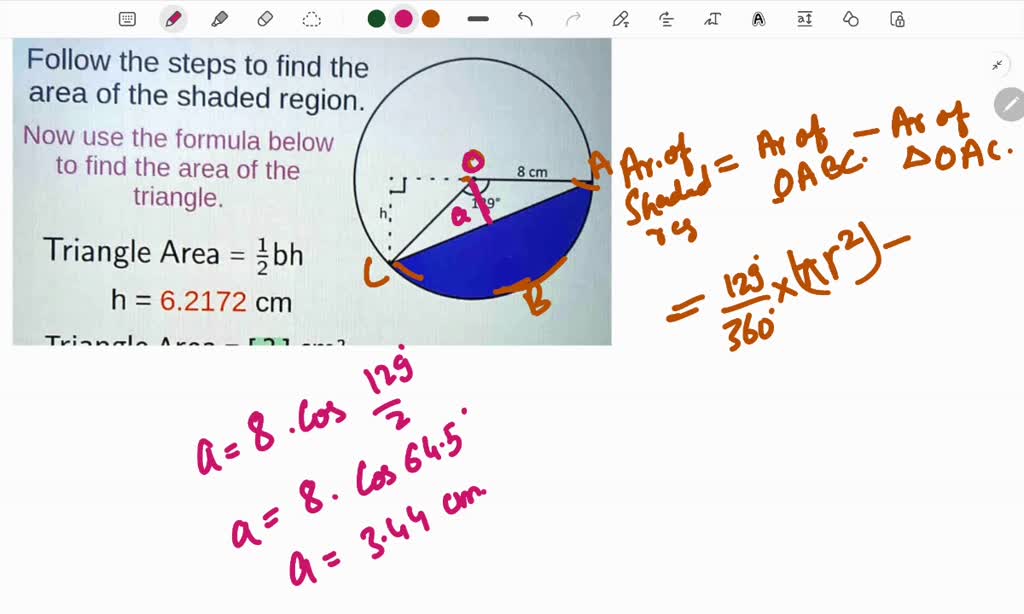 Follow the steps to find the
area of the shaded region.
Now use the formula below
to find the area of the
triangle.
Triangle Area = 1/2 bh
h = 6.2172 cm
O
8 cm
129°
h
a
A
B
C
Ar. of Shaded reg = Ar of OABC. - Ar of ΔOAC.
= 129°/360° × (πr²) -
a = 8 . cos 129°/2
a = 8 . cos 64.5°
a = 3.44 cm.